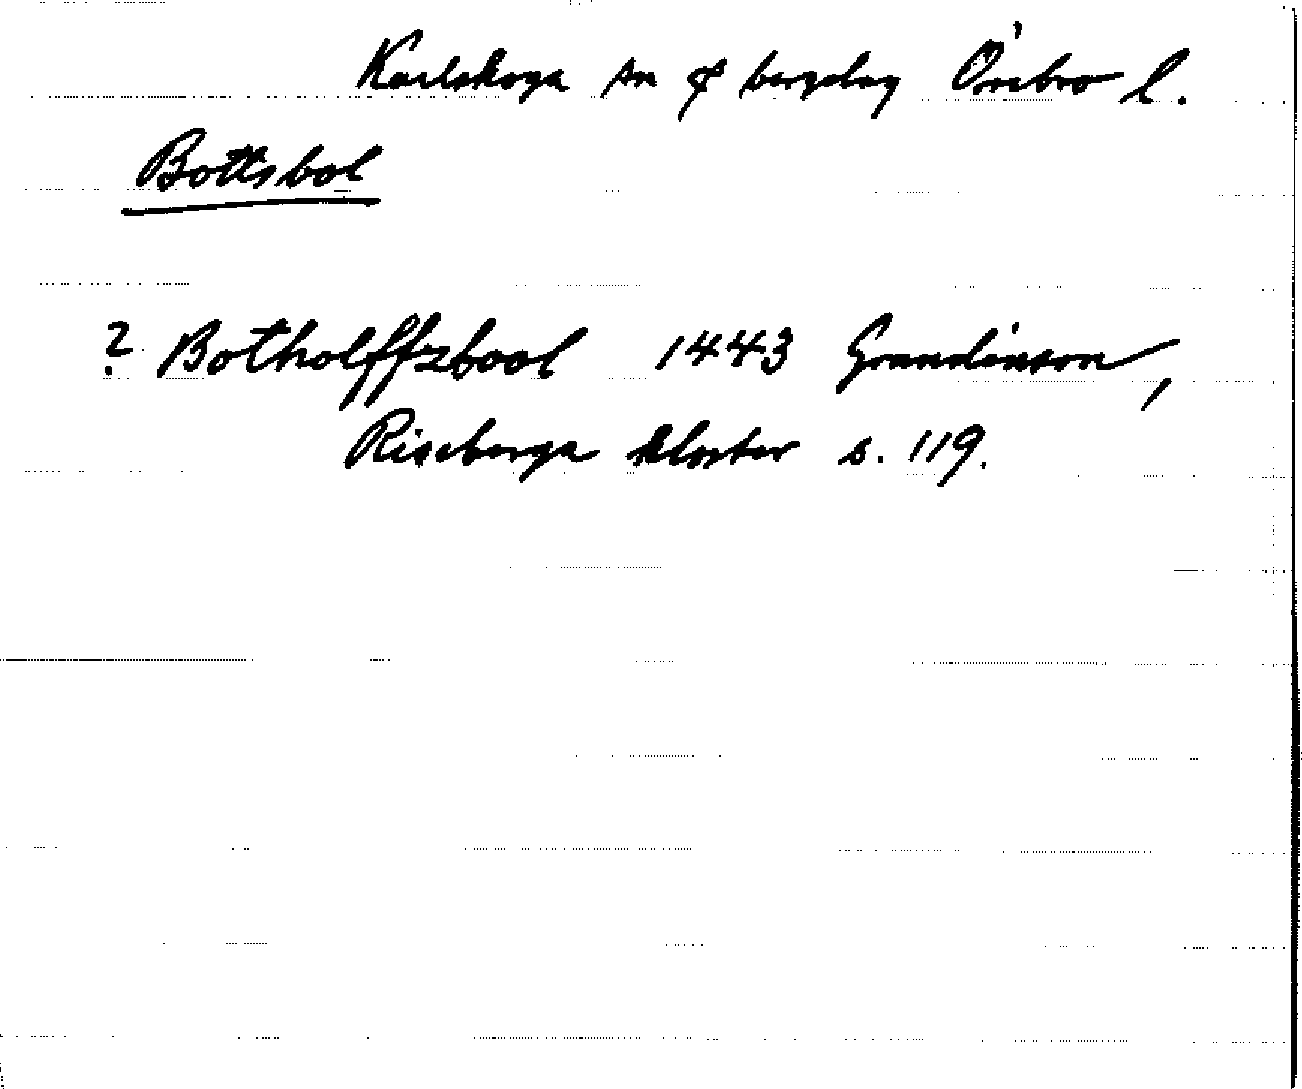 Karlskoga sn & bergslag Örebro l.
Bottsbol
? Botholffzbool 1443 Grandinson,
Riseberga kloster s. 119.